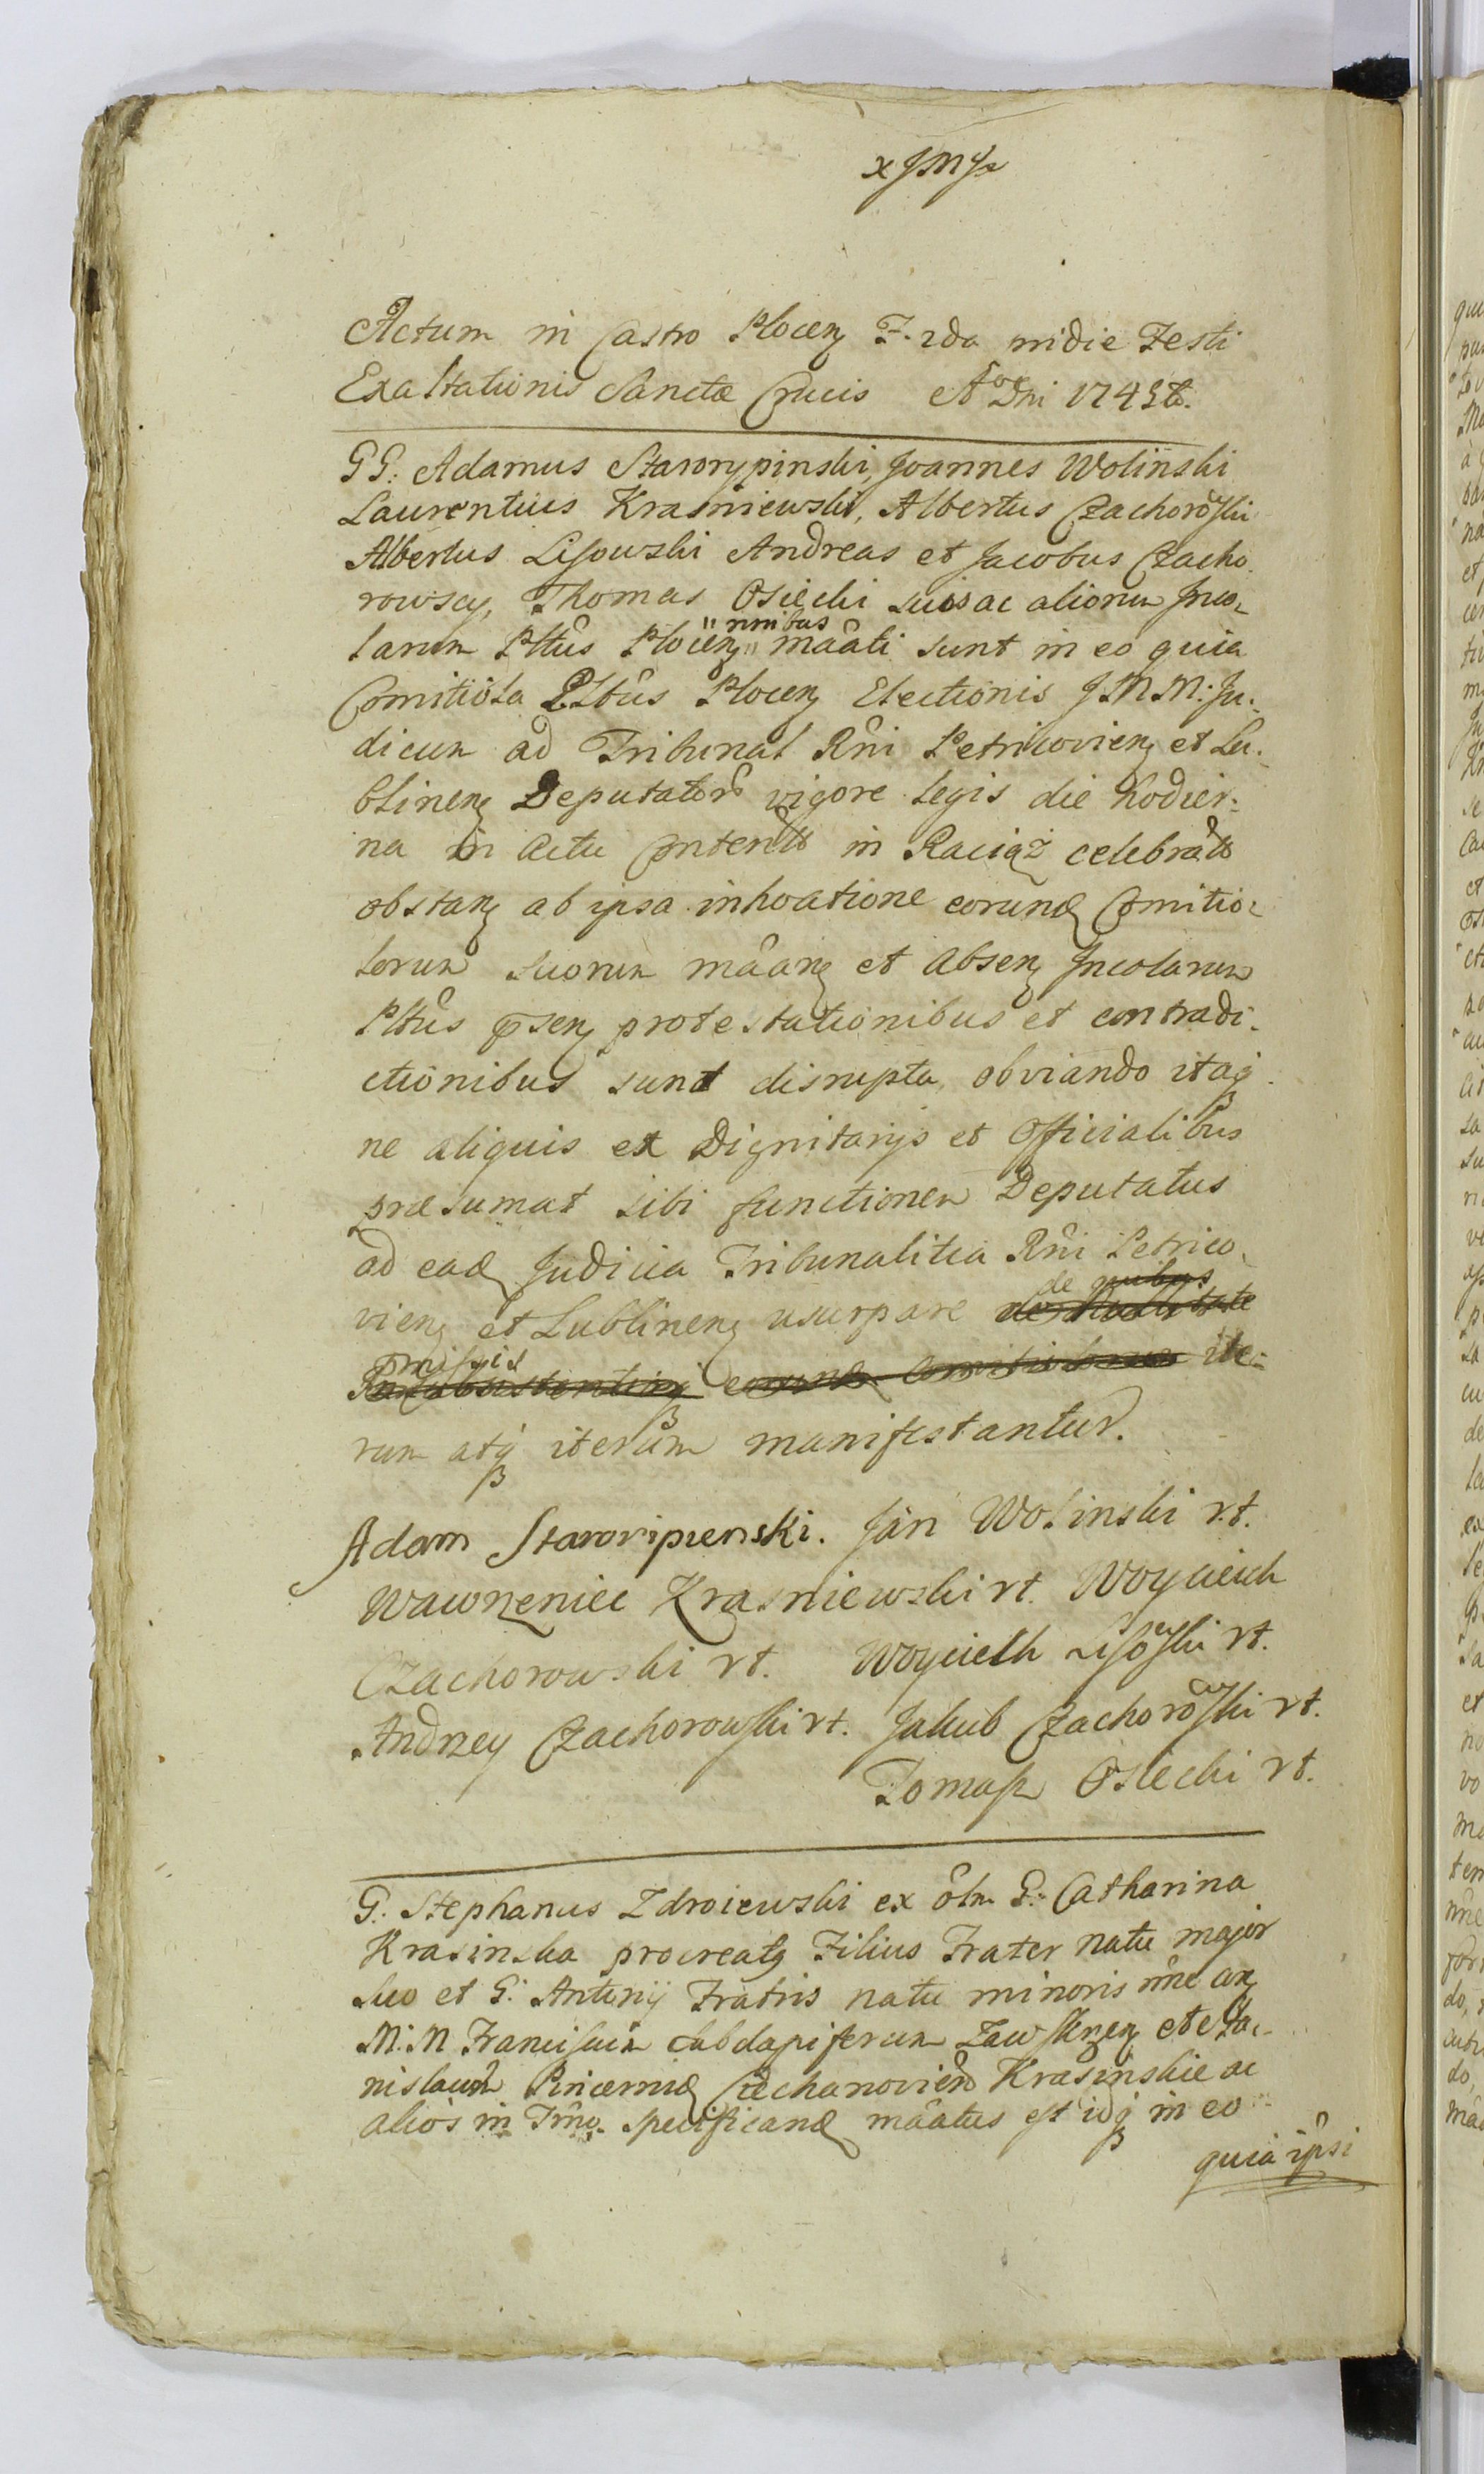 Actum in Castro Plocen F. 2da in die Festi
Exaltationis Sanctæ Crucis A Dni
GG: Adamus Starorypinski, Joannes Wolinski
Laurentius Krasniewski, Albertus Czachorowski
Albertus Lisowski Andreas et Jacobus Czacho-
rowscy, Thomas Osiecki suis ac aliorum Inco-
larum Pltûs Plocen nnibus mââti sunt in eo quia
Comitiola Pltûs Plocen Electionis J.M.M: Ju-
dicum ad Tribunal Rñi Petricovien et Lu-
blinen Deputator vigore legis die hodier-
na in Actu Content in Raciąż celebrat
obstan ab ipsa inhoatione eorund Comitio-
lorum suorum mâân et absen Incolarum
Pltûs psen protestationibus et contradi-
ctionibus sunt disrupta, obviando itaq
ne aliquis ex Dignitarijs et Officialibus
præsumat sibi functionem Deputatus
ad ead Judicia Tribunalitia Rñi Petrico-
vien et Lublinen usurpare de quibus
pmissis ite-
rum atq iterum manifestantur.
Adam Staroripienski. Jan Wolinski rt.
Wawrzeniec Krasniewski rt. Woyciech
Czachorowski rt. Woyciech Lisowski rt.
Andrzey Czachorowski rt. Jakub Czachorowski rt.
Tomasz Osiecki rt.
G. Stephanus Zdroiewski ex ôlm G: Catharina
Krasinska procreat Filius Frater natu major
suo et G: Antonij Fratris natu minoris nñe
M.M Franciscum Subdapiferum Zawskrzen et Sta-
nislaum Pincernid Ciechanovien Krasinskie ac
alios in Tmo. specificand mââtus est idq in eo
quia ipsi